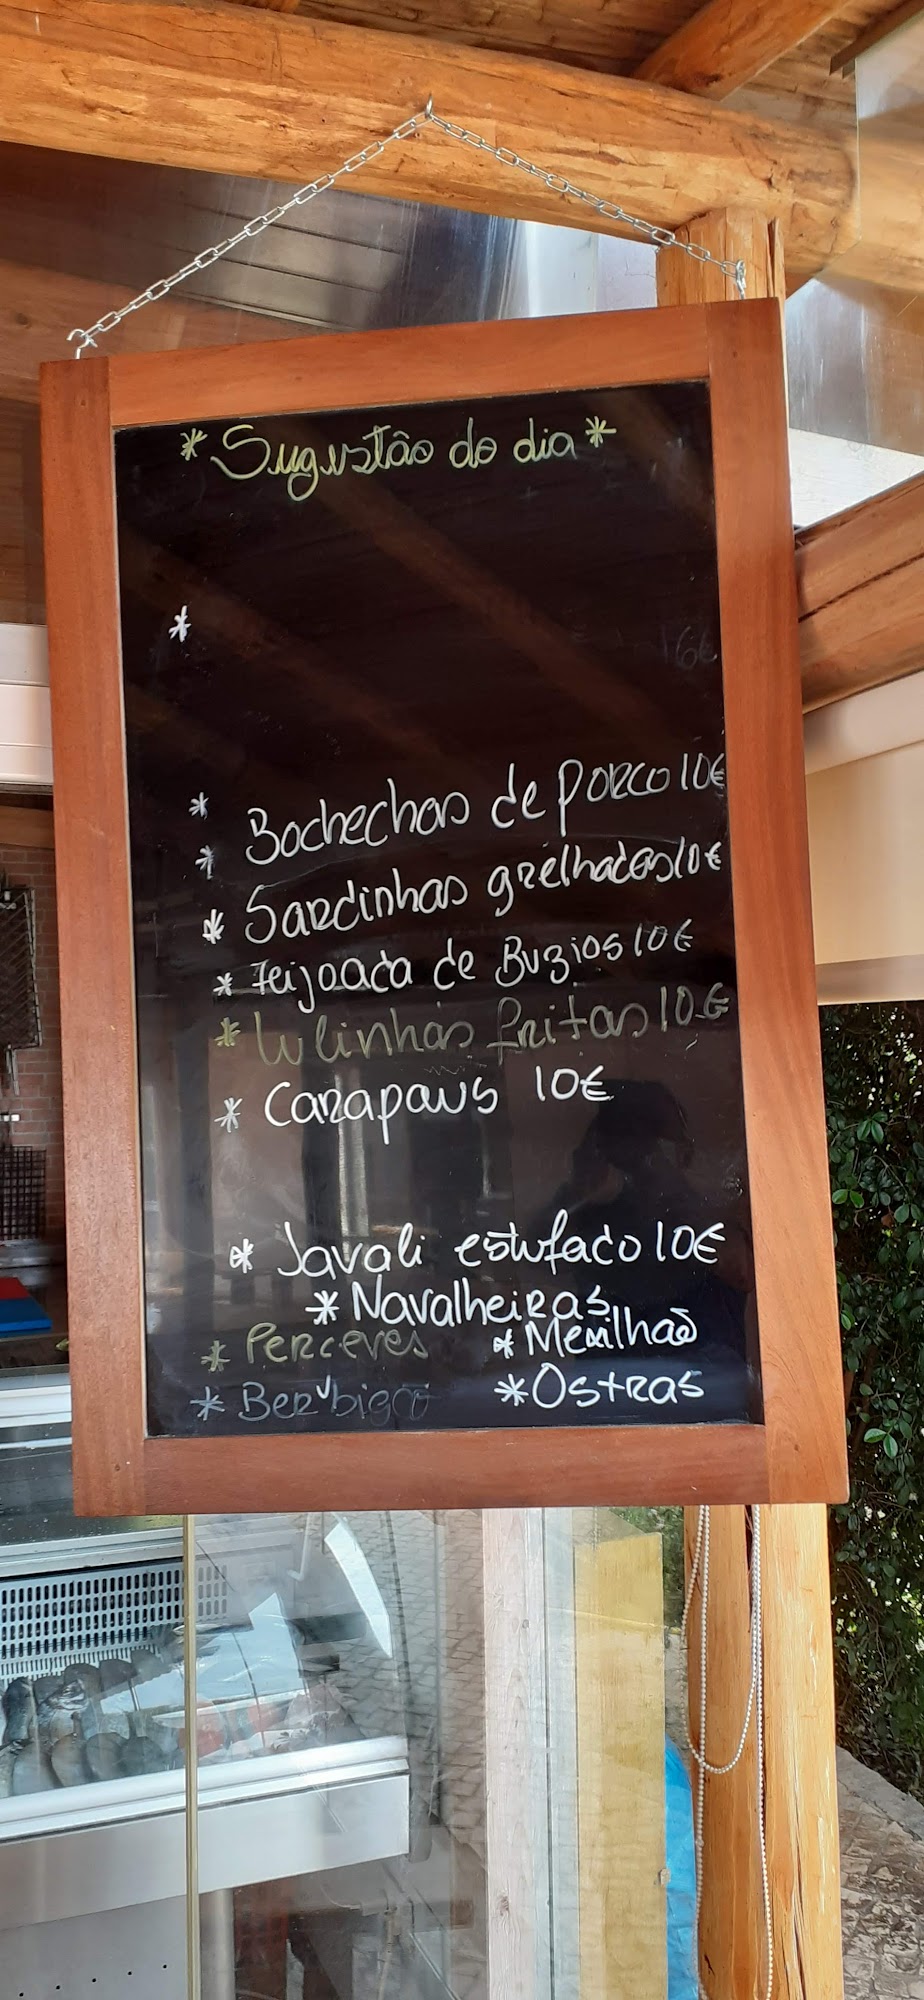 *Sugestão do dia*
*
* Bochechas de porco 10€
*
* Sardinhas grelhadas 10€
* Feijoada de Buzios 10€
* Lulinhas fritas 10€
* Carapaus 10€
* Javali estufado 10€
* Navalheiras
* Perceves * Mexilhão
* Berbigão * Ostras